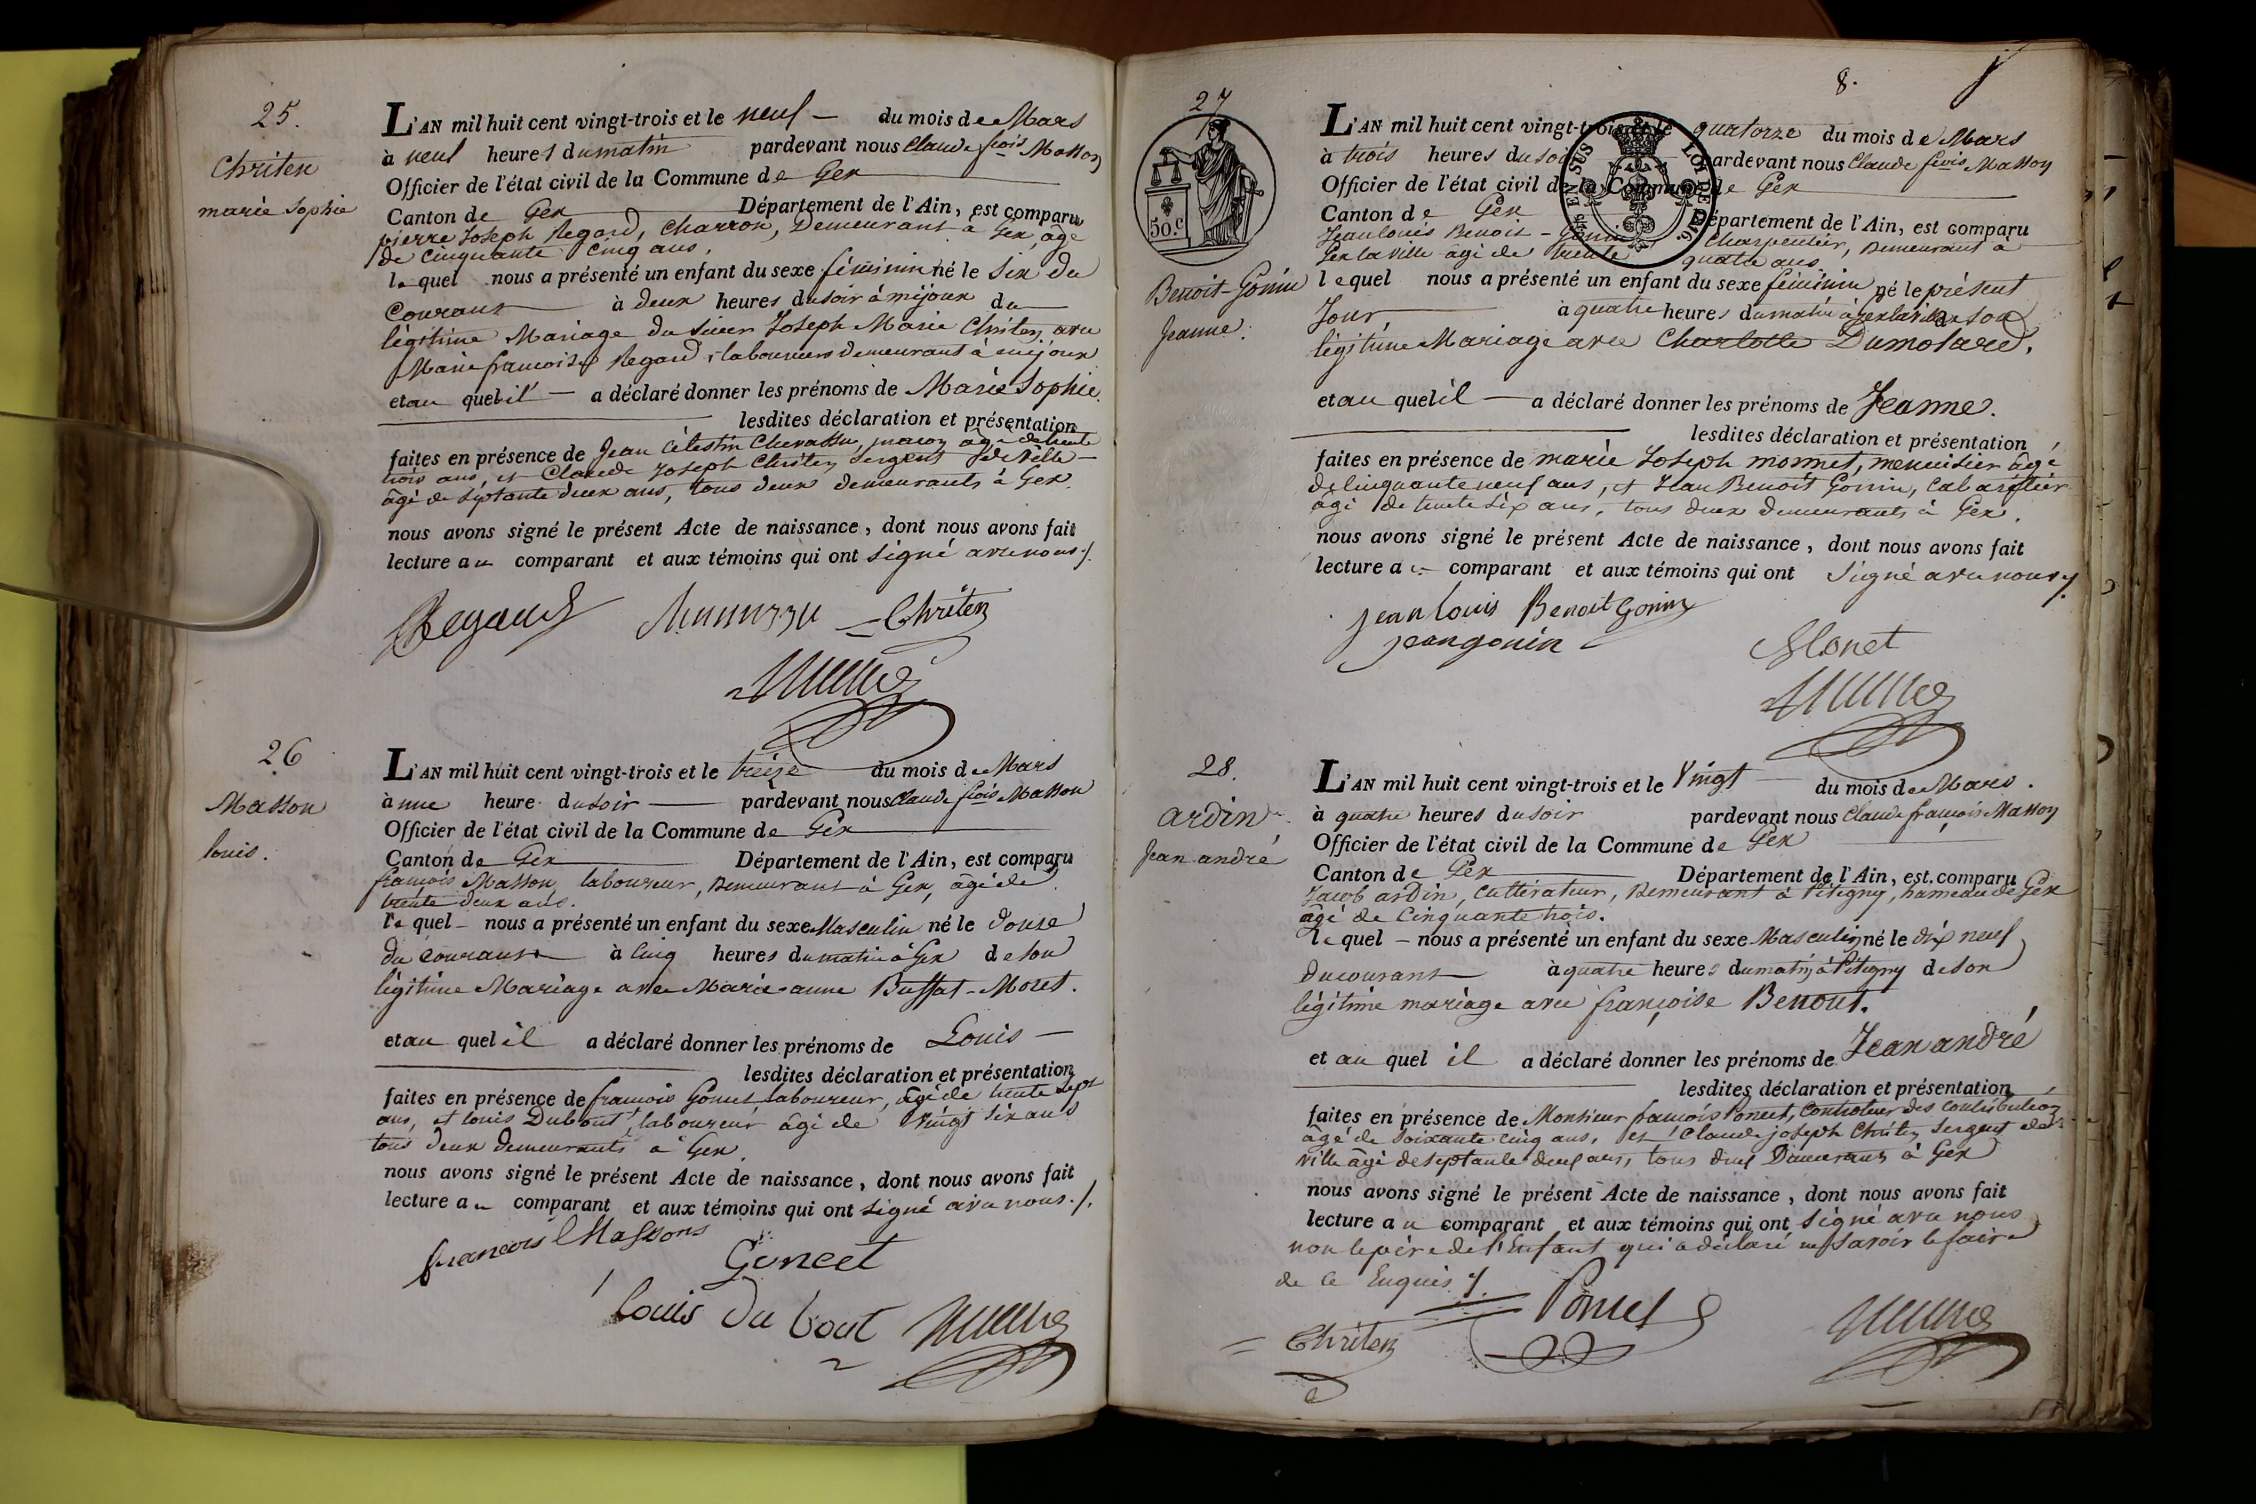 25.
Chriten
marie Sophie
L'AN mil huit cent vingt-trois et le neuf — du mois de Mars
à neuf heures du matin pardevant nous Claude fçois Masson
Officier de l'état civil de la Commune de Gex
Canton de Gex Département de l'Ain, est comparu
pierre Joseph Regard, Charron, Demeurant à Gex, âgé
de Cinquante Cinq ans,
lequel nous a présenté un enfant du sexe féminin né le Six du
Courant à deux heures du soir à mijoux du
légitime Mariage du Sieur Joseph Marie Chriten avec
Marie françoise Regard, laboureurs demeurants à mijoux
et au quel il — a déclaré donner les prénoms de Marie Sophie.
lesdites déclaration et présentation
faites en présence de Jean Célestin Chevassu, maçon âgé de trente
trois ans, et Claude Joseph Chriten Sergent de ville
âgé de Septante deux ans, tous deux demeurants à Gex.
nous avons signé le présent Acte de naissance, dont nous avons fait
lecture au comparant et aux témoins qui ont Signé avec nous ./.
Regard Chriten
26
Masson
louis.
L'AN mil huit cent vingt-trois et le treize du mois de Mars
à une heure du soir — pardevant nous Claude fçois Masson
Officier de l'état civil de la Commune de Gex
Canton de Gex Département de l'Ain, est comparu
françois Masson, laboureur, Demeurant à Gex, âgé de
trente deux ans.
lequel — nous a présenté un enfant du sexe Masculin né le douze
du courant à Cinq heures du matin à Gex de son
légitime Mariage avec Marie-anne Buffat-Moret.
et au quel il a déclaré donner les prénoms de Louis —
lesdites déclaration et présentation
faites en présence de françois Goncet laboureur, âgé de trente sept
ans, et louis Dubout, laboureur âgé de vingt six ans
tous deux demeurants à Gex.
nous avons signé le présent Acte de naissance, dont nous avons fait
lecture au comparant et aux témoins qui ont signé avec nous ./.
francois Massons
Goncet
louis du bout
8.
27
50.c
EN SUS LOI DE 1816.
Benoit-Gonin
Jeanne.
L'AN mil huit cent vingt-trois et le quatorze du mois de Mars
à trois heures du soir pardevant nous Claude fçois Masson
Officier de l'état civil de la Commune de Gex
Canton de Gex Département de l'Ain, est comparu
Jean louis Benoit-Gonin Charpentier, Demeurant à
Gex la ville âgé de trente quatre ans
lequel nous a présenté un enfant du sexe féminin né le présent
Jour, à quatre heures du matin à Gex la ville de son
légitime Mariage avec Charlotte Dumolard.
et au quel il — a déclaré donner les prénoms de Jeanne.
lesdites déclaration et présentation
faites en présence de marie Joseph monnet, menuisier âgé
de Cinquante neuf ans, et Jean Benoit Gonin, Cabaretier
âgé de trente six ans, tous deux demeurants à Gex.
nous avons signé le présent Acte de naissance, dont nous avons fait
lecture au comparant et aux témoins qui ont Signé avec nous ./.
jean louis Benoit Gonin
jean gonin
Monet
28.
ardin
Jean andré
L'AN mil huit cent vingt-trois et le Vingt du mois de Mars.
à quatre heures du soir pardevant nous Claude françois Masson
Officier de l'état civil de la Commune de Gex
Canton de Gex Département de l'Ain, est comparu
Jacob ardin, Cultivateur, Demeurant à Pitegny, hameau de Gex
âgé de Cinquante trois.
lequel — nous a présenté un enfant du sexe Masculin né le dix neuf
du courant à quatre heures du matin à Pitegny de son
légitime mariage avec françoise Benout.
et au quel il a déclaré donner les prénoms de Jean andré
lesdites déclaration et présentation
faites en présence de Monsieur françois Poncet, Controleur des contributions
âgé de Soixante cinq ans, et Claude joseph Chriten Sergent de
ville âgé de Septante deux ans, tous deux Demeurants à Gex
nous avons signé le présent Acte de naissance, dont nous avons fait
lecture au comparant et aux témoins qui ont Signé avec nous
non le père de l'Enfant qui a déclaré ne Savoir le faire
de ce Enquis ./.
Poncet
Chriten